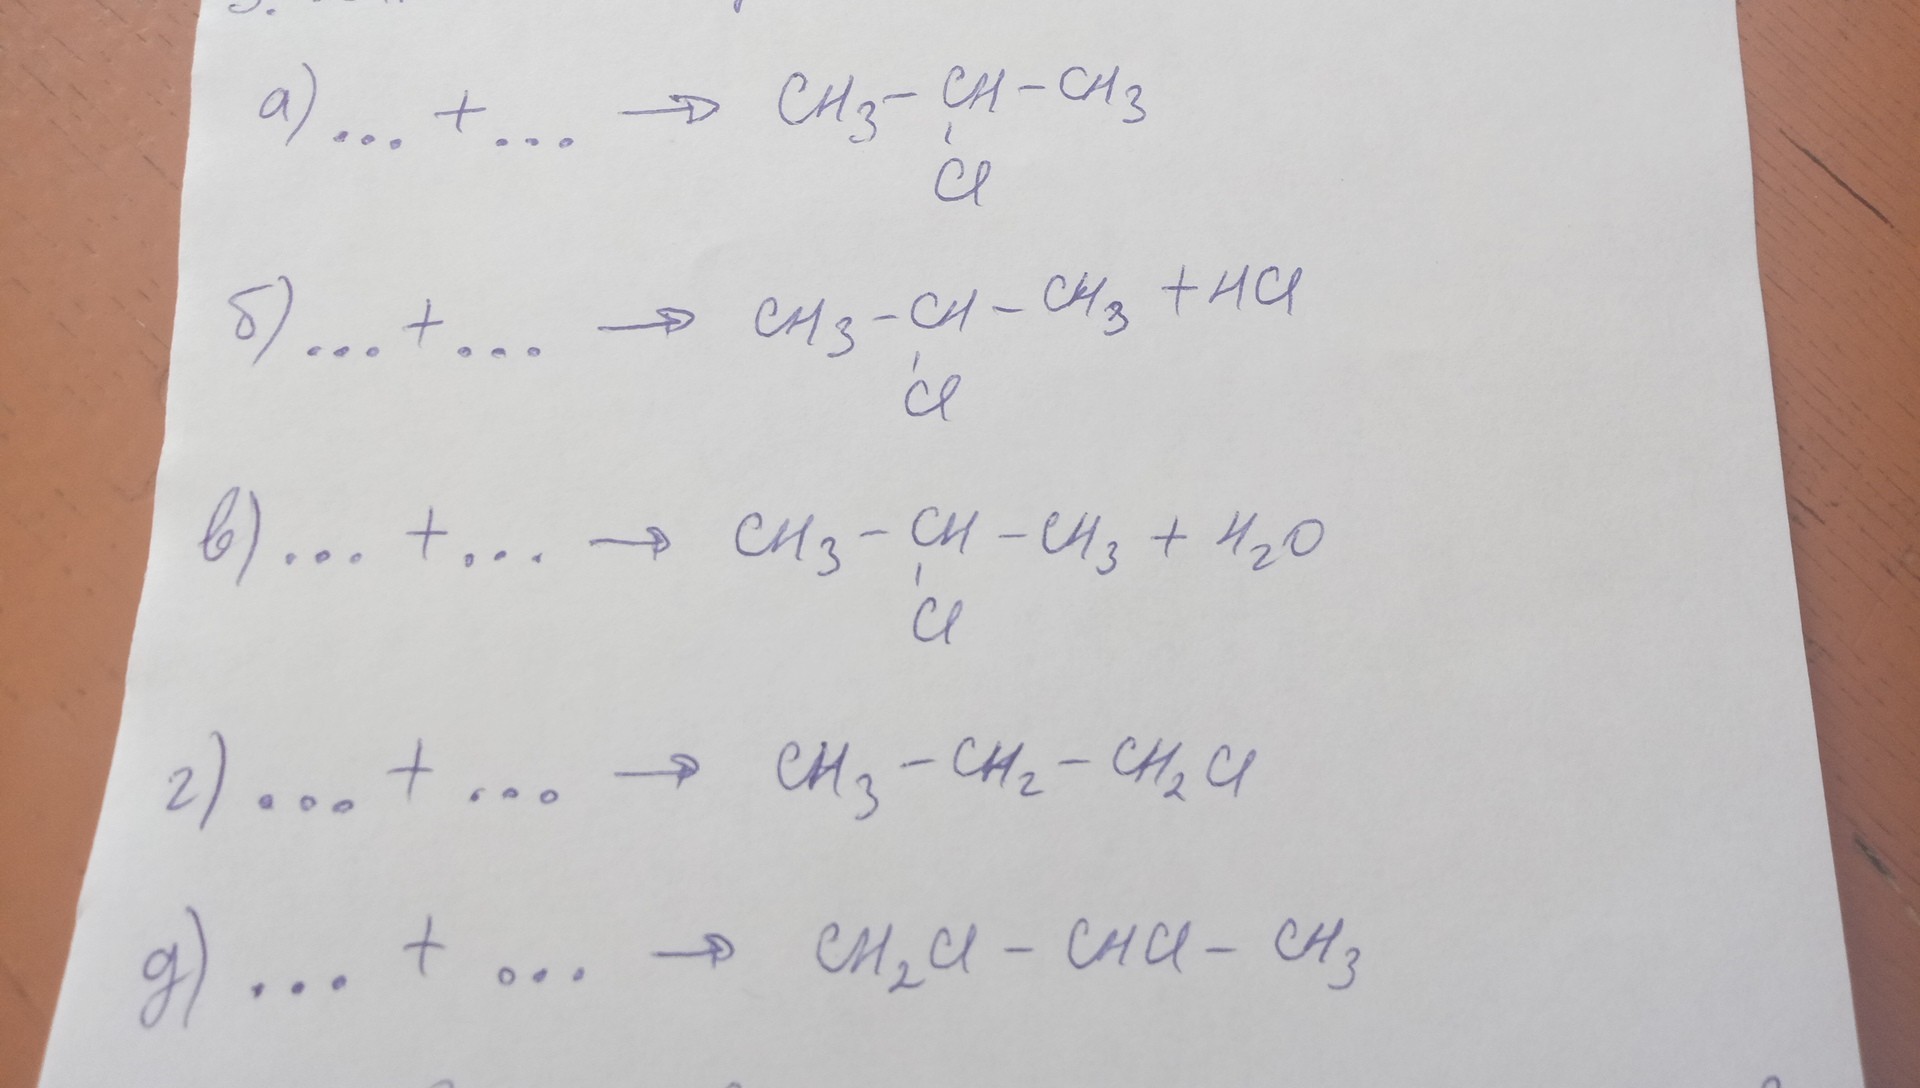 а) ... + ... → CH₃ - CH - CH₃
Cl
б) ... + ... → CH₃ - CH - CH₃ + HCl
Cl
в) ... + ... → CH₃ - CH - CH₃ + H₂O
Cl
г) ... + ... → CH₃ - CH₂ - CH₂Cl
д) ... + ... → CH₂Cl - CHCl - CH₃